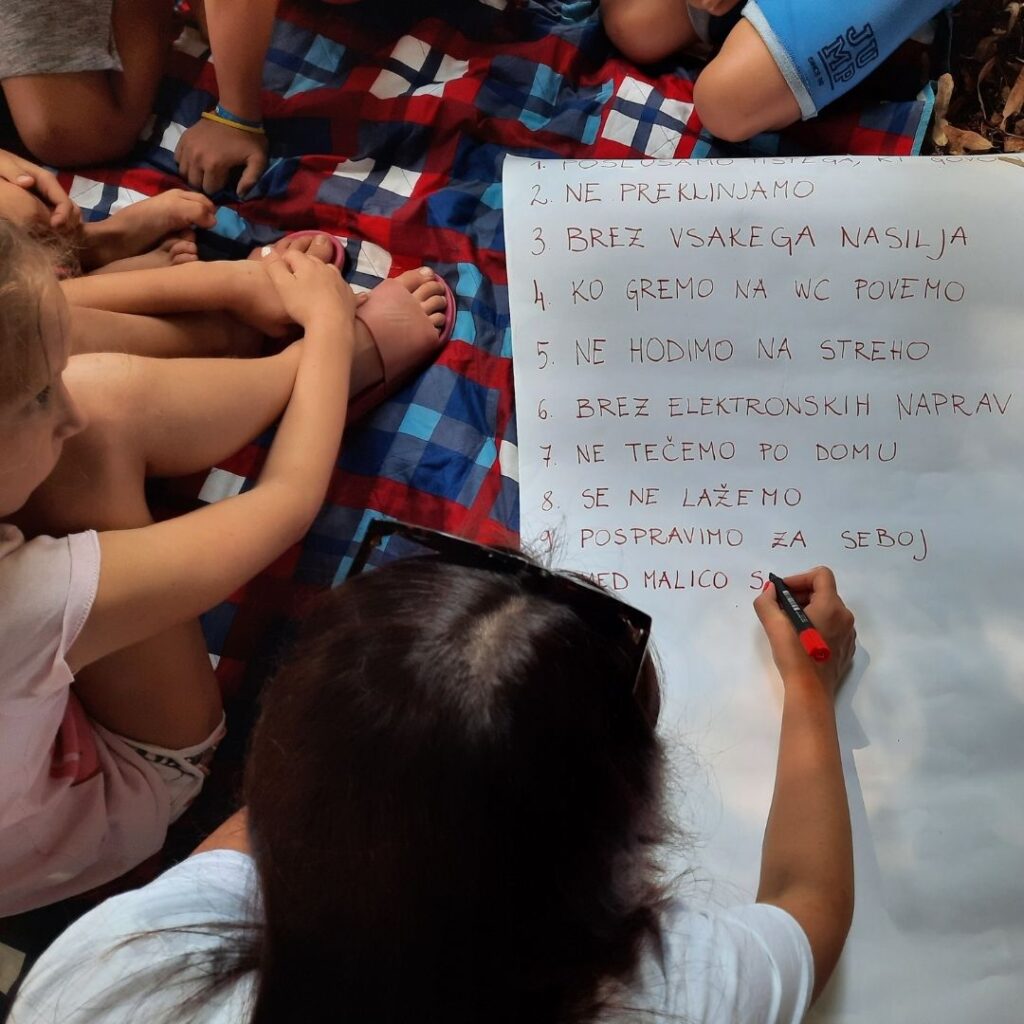 JUMP
1. POSLUŠAMO TISTEGA, KI GOVO
2. NE PREKLINJAMO
3 BREZ VSAKEGA NASILJA
4. KO GREMO NA WC POVEMO
5. NE HODIMO NA STREHO
6. BREZ ELEKTRONSKIH NAPRAV
7. NE TEČEMO PO DOMU
8. SE NE LAŽEMO
9. POSPRAVIMO ZA SEBOJ
MED MALICO S